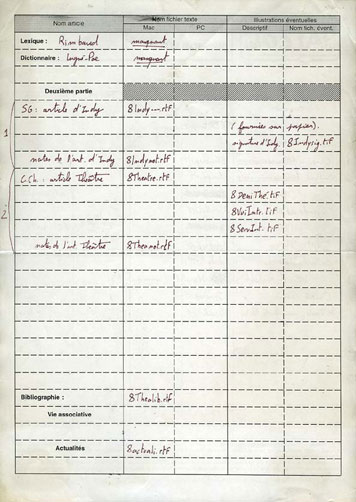 Nom article Nom fichier texte Illustrations éventuelles
Mac PC Descriptif Nom fich. évent.
Lexique : Rimbaud manquant
Dictionnaire : Lugné-Poe manquant
Deuxième partie
SG : article d'Indy 8Indy—.rtf
1
(fournies sur papier).
signature d'Indy 8Indysig.tif
notes de l'art. d'Indy 8Indynot.rtf
C.Ch. article Théâtre 8Theatre.rtf
8DemiThé.tif
2
8VoiIntr.tif
8SensInt.tif
notes de l'art Théâtre 8Theanot.rtf
Bibliographie : 8Theabib.rtf
Vie associative
Actualités 8actuali.rtf